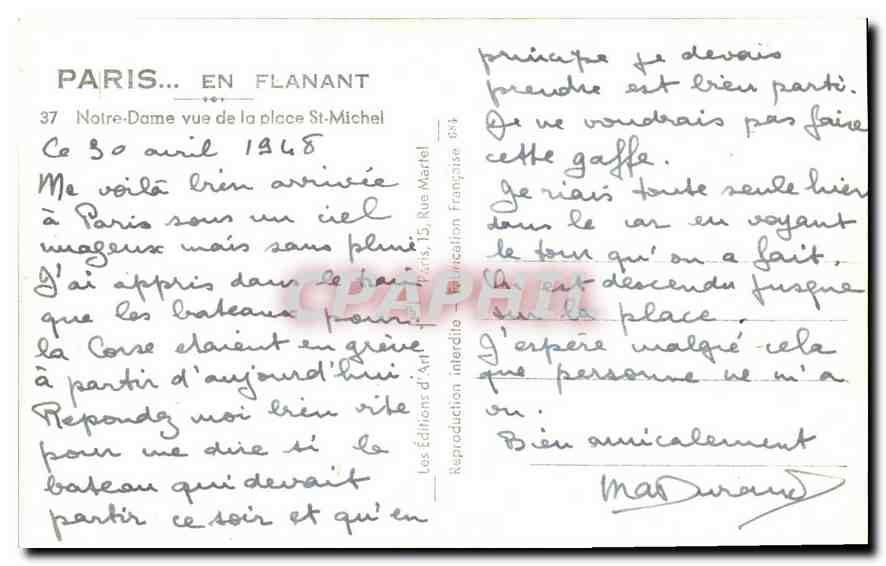 PARIS... EN FLANANT
37 Notre-Dame vue de la place St-Michel
Ce 30 avril 1948
Me voilà bien arrivée
à Paris sous un ciel
nuageux mais sans pluie
J'ai appris dans le train
que les bateaux pour
la Corse étaient en grève
à partir d'aujourd'hui.
Repondez moi bien vite
pour me dire si le
bateau qui devait
partir ce soir et qu'en
principe je devais
prendre est bien parti.
Je ne voudrais pas faire
cette gaffe.
Je riais toute seule hier
dans le car en voyant
le tour qu'on a fait.
On est descendu jusque
sur la place.
J'espère malgré cela
que personne ne m'a
vu.
Bien amicalement
Durand
Les Editions d'Art Paris, 15, Rue Martel
Reproduction interdite - Fabrication Française 684
CPAPHIL